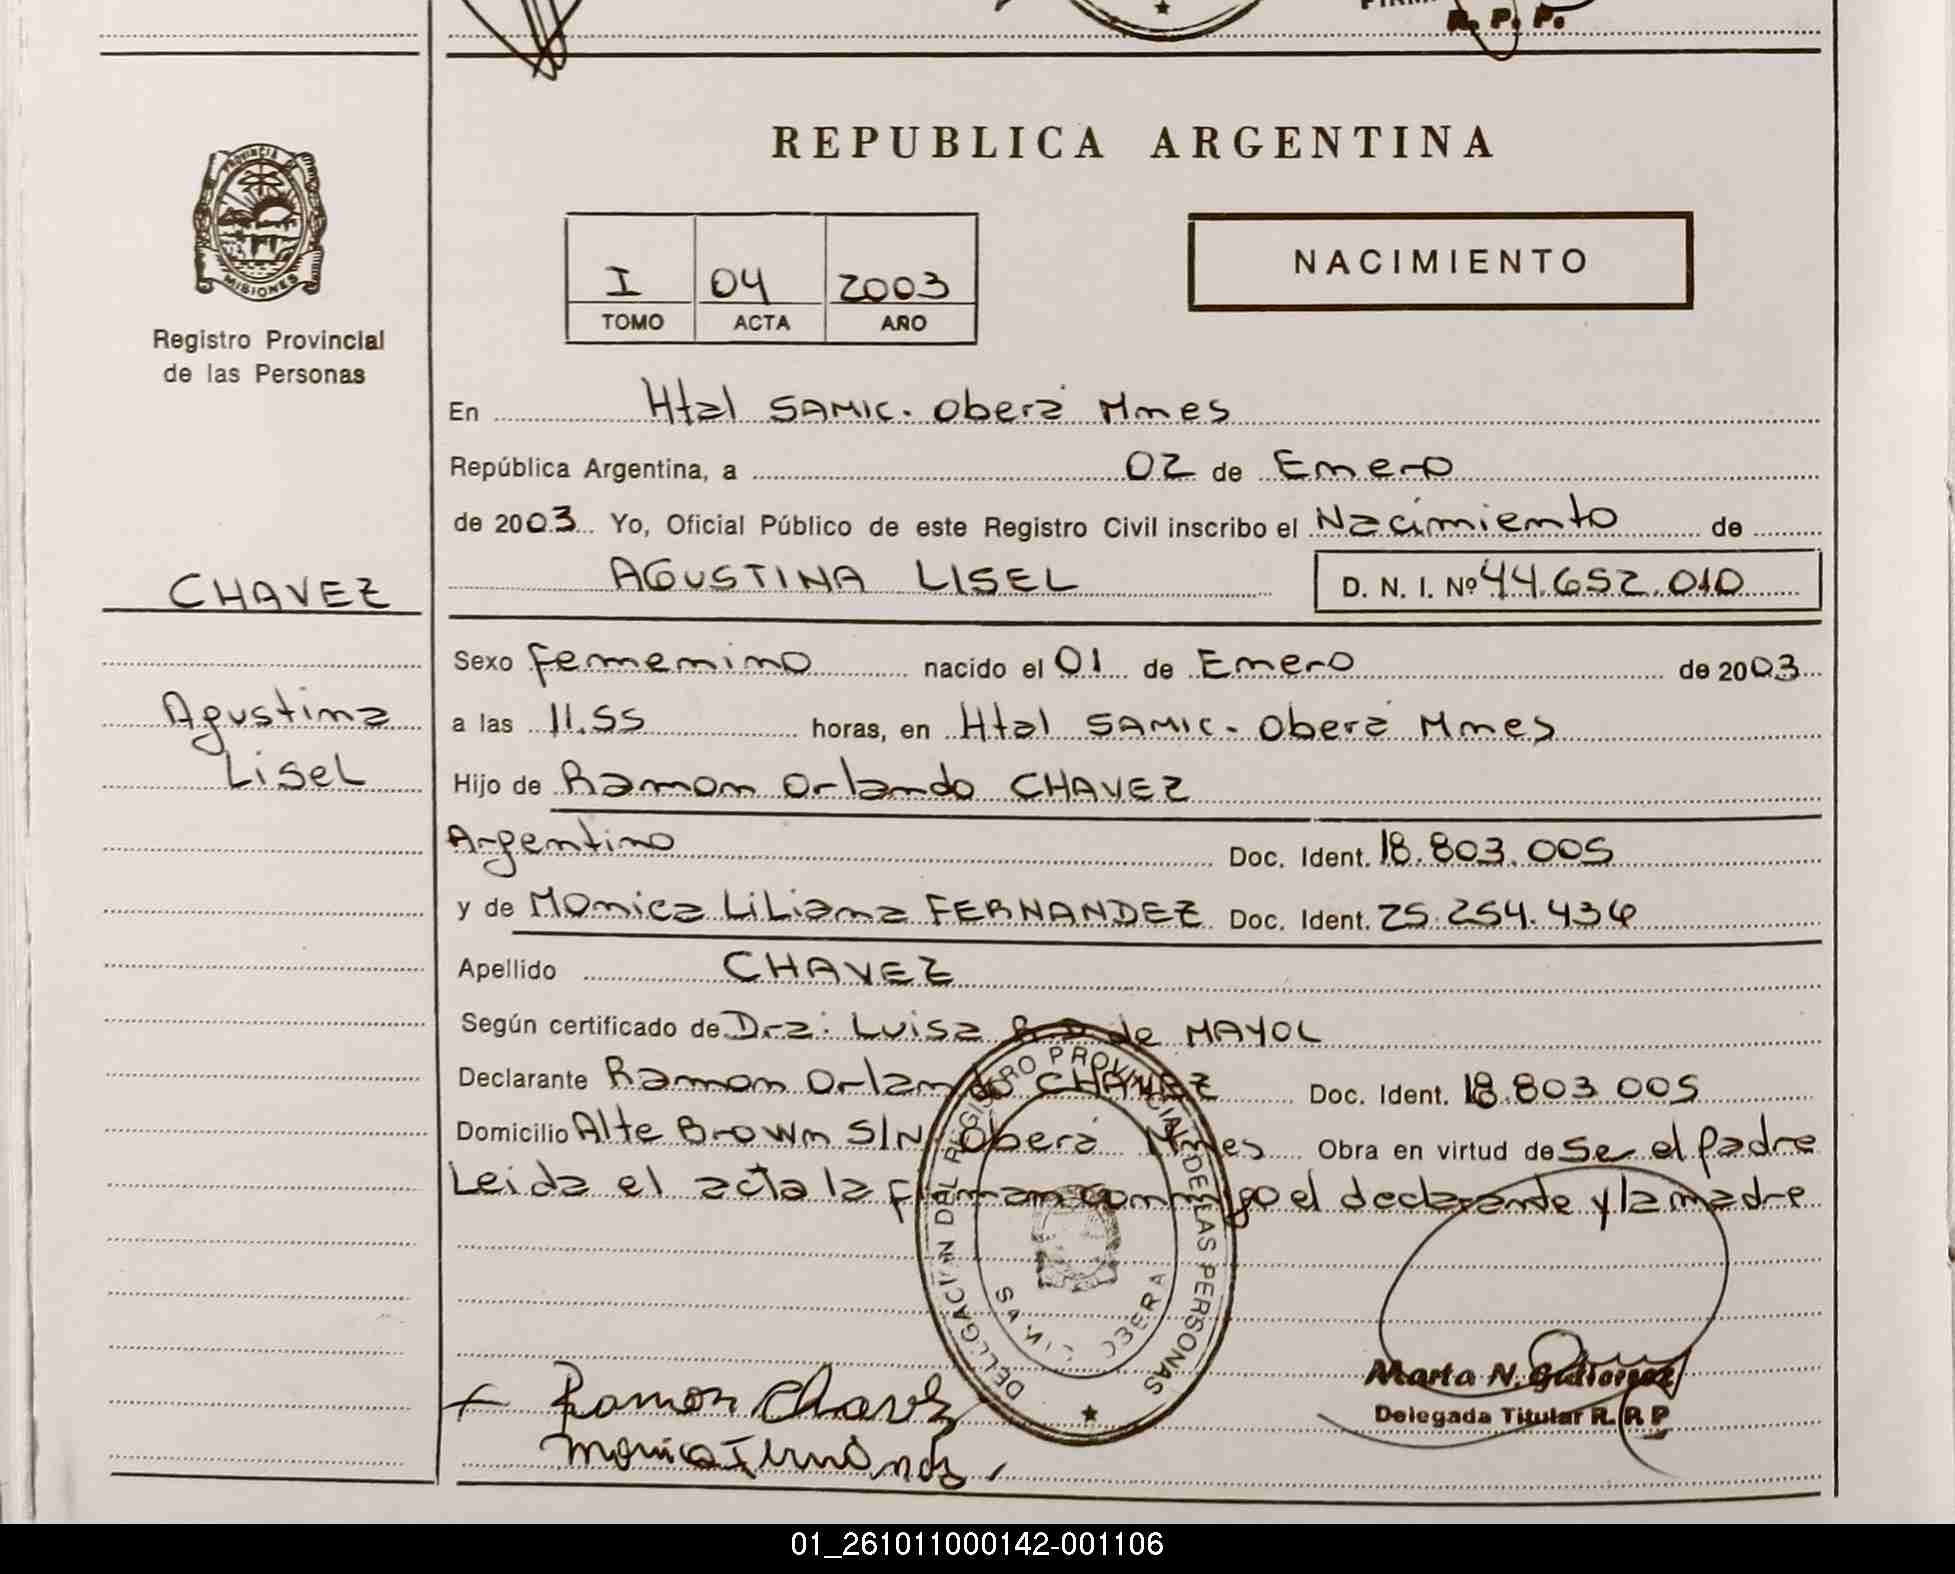 R. P. P.
REPUBLICA ARGENTINA
PROVINCIA DE
MISIONES
Registro Provincial
de las Personas
I 04 2003
TOMO ACTA AÑO
NACIMIENTO
En Htal SAMIC. Oberá Mnes
República Argentina, a 02 de Enero
de 2003 Yo, Oficial Público de este Registro Civil inscribo el Nacimiento de
CHAVEZ
AGUSTINA LISEL D. N. I. Nº 44.652.010
Sexo femenino nacido el 01 de Enero de 2003
Agustina
a las 11.55 horas, en Htal SAMIC. Oberá Mnes
Lisel
Hijo de Ramon Orlando CHAVEZ
Argentino Doc. Ident. 18.803.005
y de Monica Liliana FERNANDEZ Doc. Ident. 25.254.436
Apellido CHAVEZ
Según certificado de Dra: Luisa de MAYOL
Declarante Ramon Orlando CHAVEZ Doc. Ident. 18.803.005
Domicilio Alte Brown S/N Oberá Mnes Obra en virtud de Se el padre
Leida el acta la firman conmigo el declarante y la madre
DELEGACION DEL REGISTRO PROVINCIAL DE LAS PERSONAS
SAMIC OBERA
Ramon Chavez
Monica Fernández
Marta N. Gutierrez
Delegada Titular R. P. P.
01_261011000142-001106